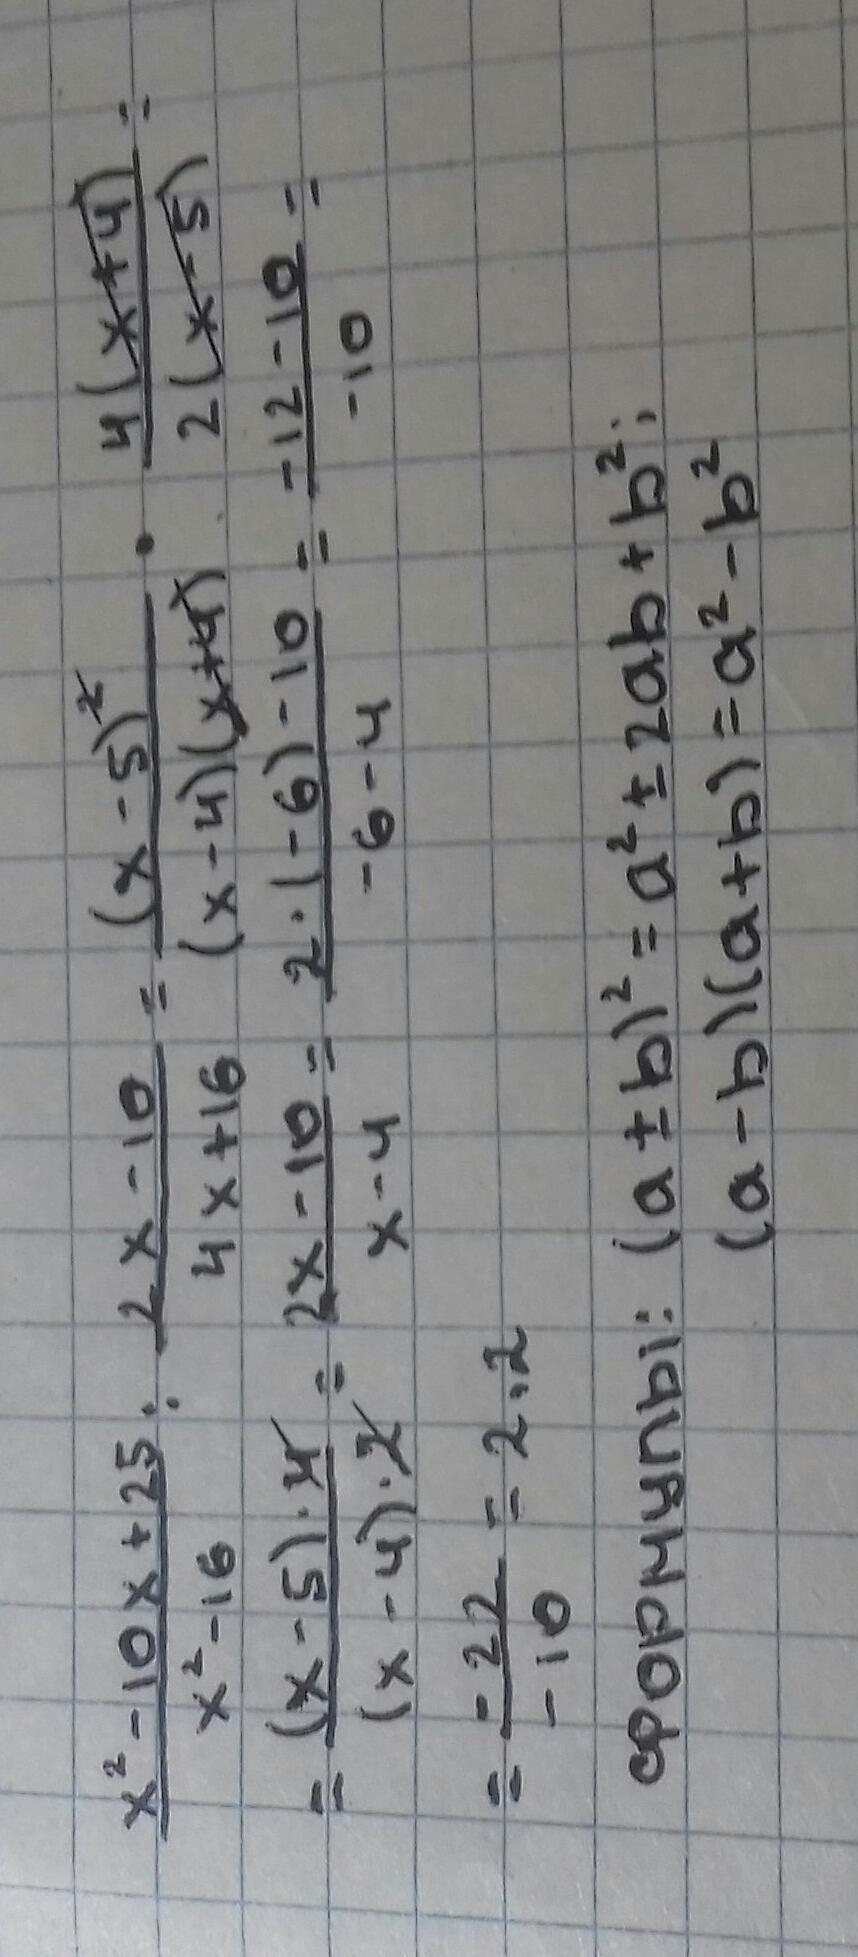 x² - 10x + 25 / x² - 16 : 2x - 10 / 4x + 16 = (x - 5)² / (x - 4)(x + 4) · 4(x + 4) / 2(x - 5) =
= (x - 5) · 4 / (x - 4) · 2 = 2x - 10 / x - 4 = 2 · (-6) - 10 / -6 - 4 = -12 - 10 / -10 =
= -22 / -10 = 2.2
формулы: (a ± b)² = a² ± 2ab + b²;
(a - b)(a + b) = a² - b²